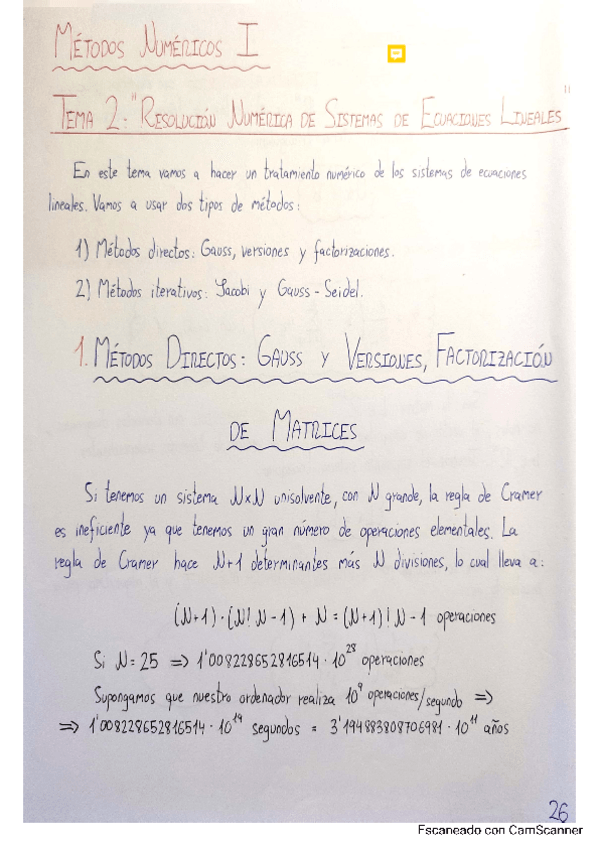 MÉTODOS NUMÉRICOS I
TEMA 2: "RESOLUCIÓN NUMÉRICA DE SISTEMAS DE ECUACIONES LINEALES"
En este tema vamos a hacer un tratamiento numérico de los sistemas de ecuaciones
lineales. Vamos a usar dos tipos de métodos:
1) Métodos directos: Gauss, versiones y factorizaciones.
2) Métodos iterativos: Jacobi y Gauss-Seidel.
1. MÉTODOS DIRECTOS: GAUSS Y VERSIONES, FACTORIZACIÓN
DE MATRICES
Si tenemos un sistema N×N unisolvente, con N grande, la regla de Cramer
es ineficiente ya que tenemos un gran número de operaciones elementales. La
regla de Cramer hace N+1 determinantes más N divisiones, lo cual lleva a:
(N+1)·(N! N-1) + N = (N+1)! N - 1 operaciones
Si N=25 => 1'008228652816514·10^28 operaciones
Supongamos que nuestro ordenador realiza 10^9 operaciones/segundo =>
=> 1'008228652816514·10^19 segundos = 3'194883808706981·10^11 años
26
Escaneado con CamScanner